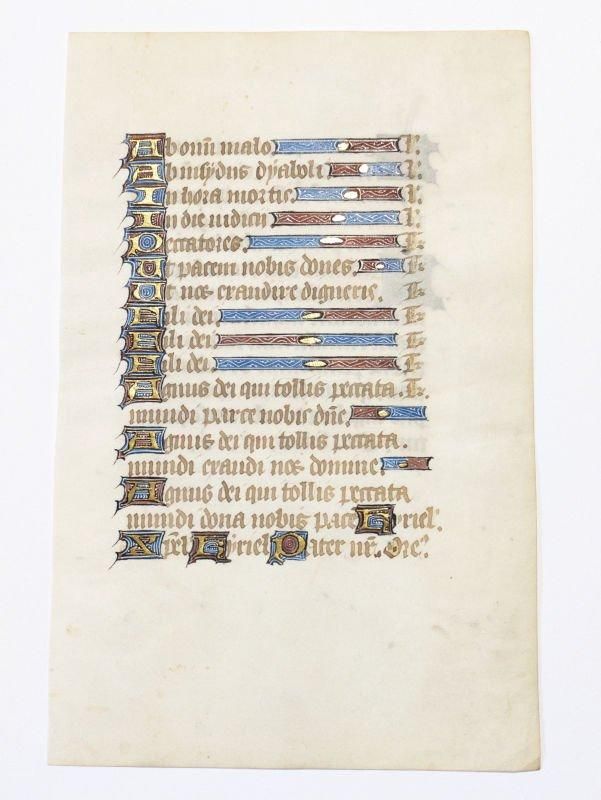 Ab om̄i malo. l'.
Ab insydiis dyaboli l'.
In hora mortis. l'.
In die iudicii l'.
Peccatores. t̃.
Ut pacem nobis dones. t̃.
Ut nos exaudire digneris. t̃.
Fili dei. t̃.
Fili dei. t̃.
Fili dei. t̃.
Agnus dei qui tollis peccata.
mundi parce nobis dn̄e.
Agnus dei qui tollis peccata.
mundi exaudi nos domine.
Agnus dei qui tollis peccata
mundi dona nobis pacē Kyriel'.
Xp̄el' Kyriel' Pater nr̄.